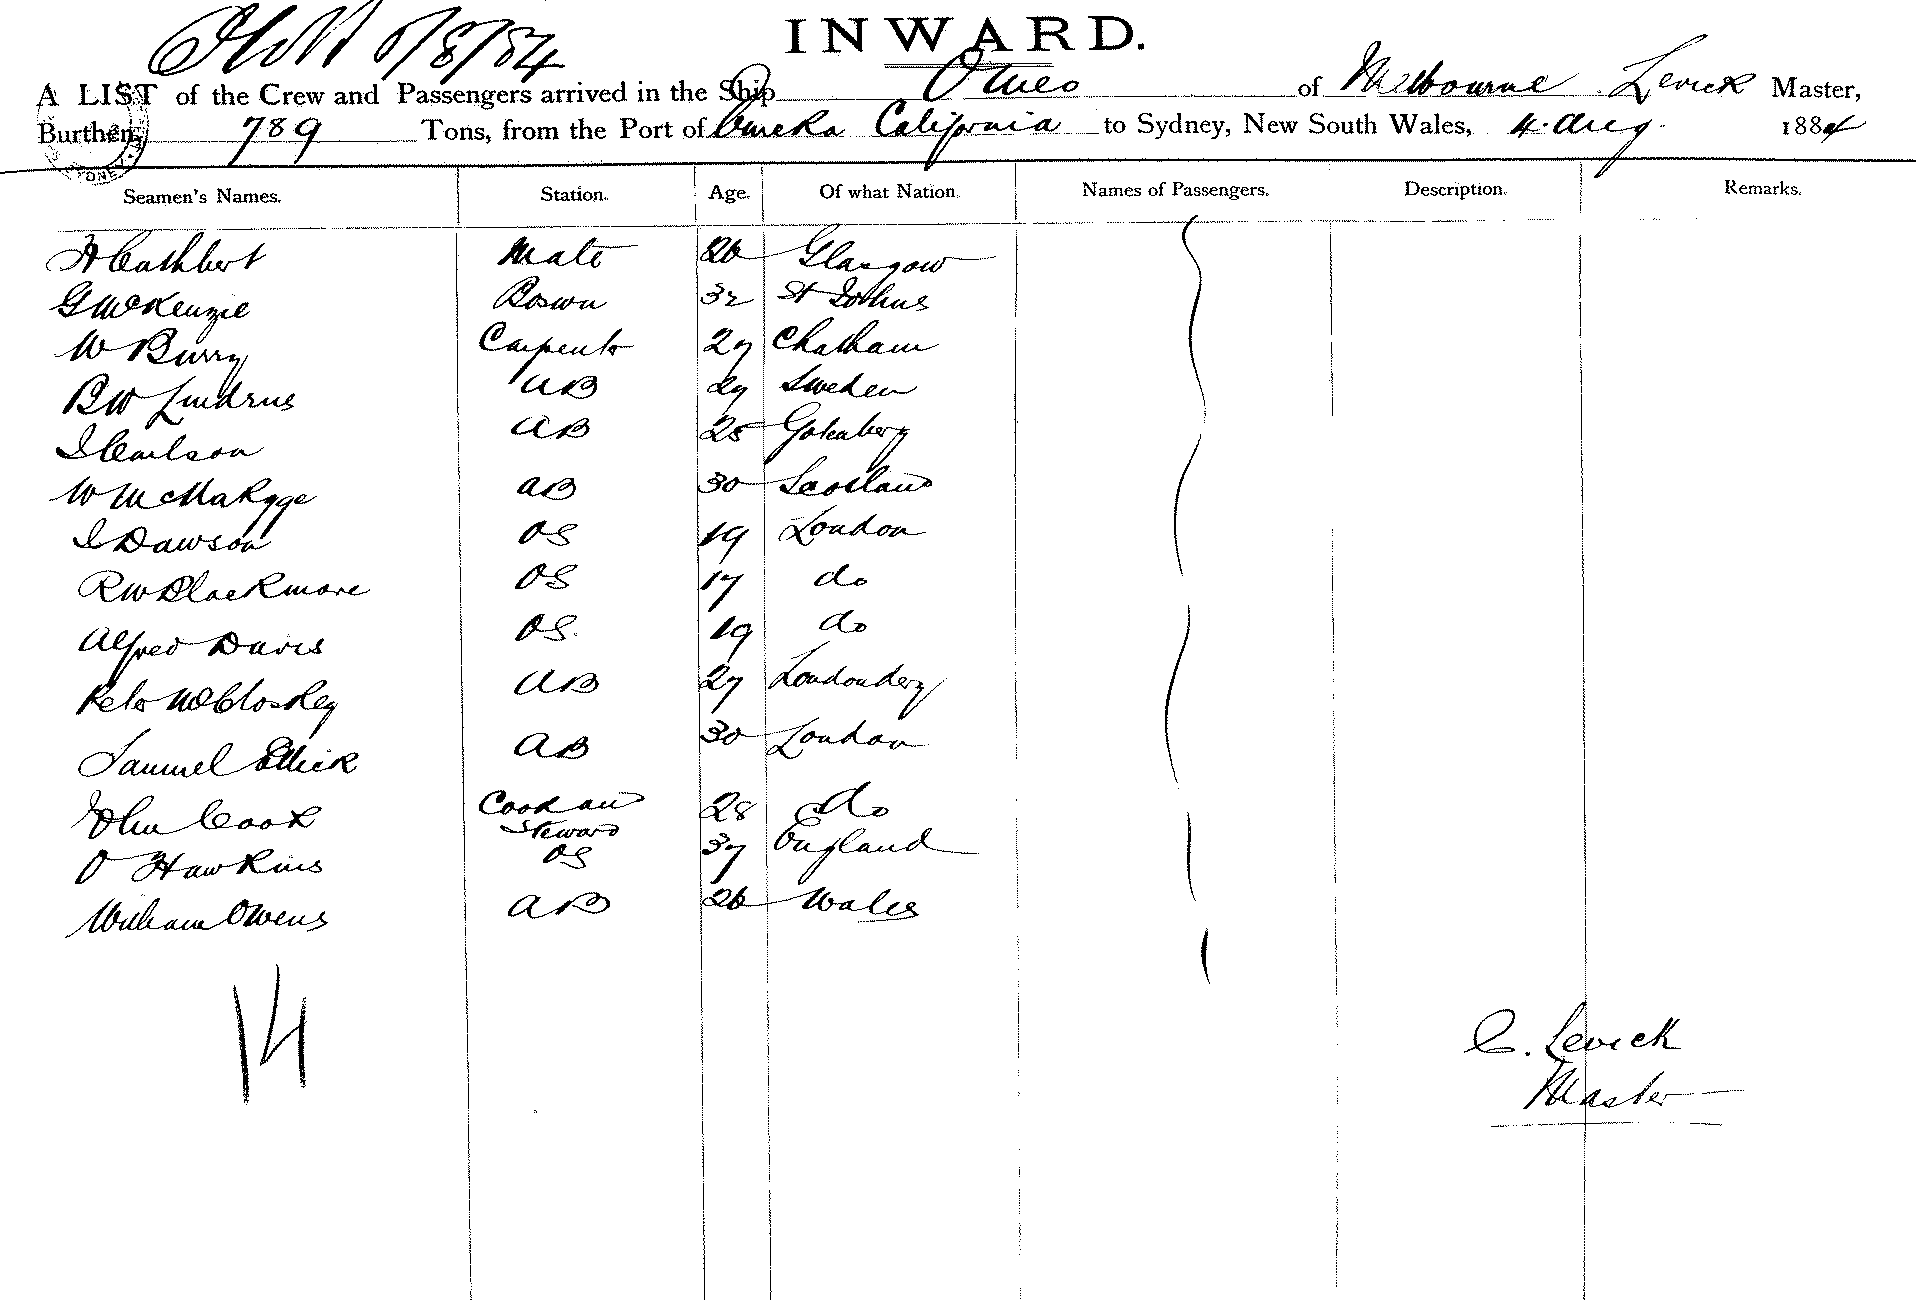 5/8/84
INWARD.
A LIST of the Crew and Passengers arrived in the Ship Omeo of Melbourne Levick Master,
Burthen, 789 Tons, from the Port of Eureka California to Sydney, New South Wales, 4. Aug. 1884
Seamen's Names. Station. Age. Of what Nation. Names of Passengers. Description. Remarks.
H Cuthbert Mate 26 Glasgow
G McKenzie Boswn 32 St Johns
W Burry Carpentr 27 Chatham
BW Lindrus AB 27 Sweden
I Carlson AB 25 Gotenberg
W 30 AB Scotland
I Dawson OS 19 London
RW Blackmore OS 17 do
Alfred Davis OS. 19 do
Peter McCloskey AB 27 Londondery
Samuel Ellick AB 30 London
John Cook Cook and Steward 28 do
O Hawkins OS 37 England
William Owens AB 26 Wales
14
C. Levick
Master